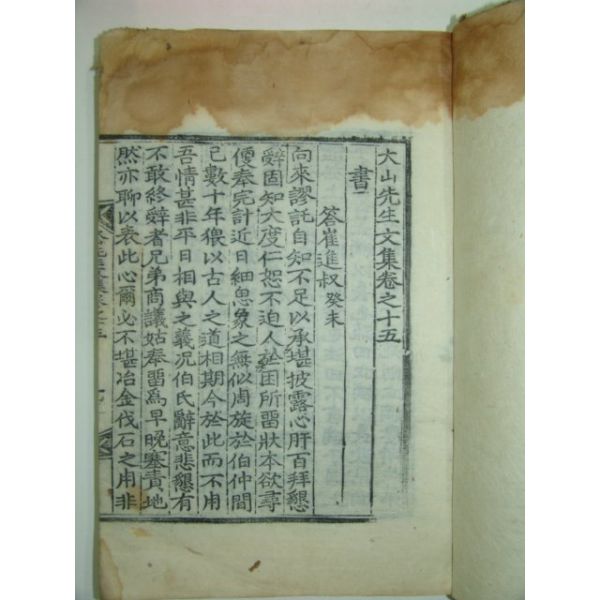 大山先生文集卷之十五
書
答崔進叔癸未
向來謬託自知不足以承堪披露心肝百拜懇
辭固知大度仁恕不迫人於困所留狀本欲尋
便奉完計近日細思象之無似周旋於伯仲間
已數十年猥以古人之道相期今於此而不用
吾情甚非平日相與之義况伯氏辭意悲懇有
不敢終辭者兄弟商議姑奉留爲早晩塞責地
然亦聊以表此心爾必不堪冶金伐石之用非